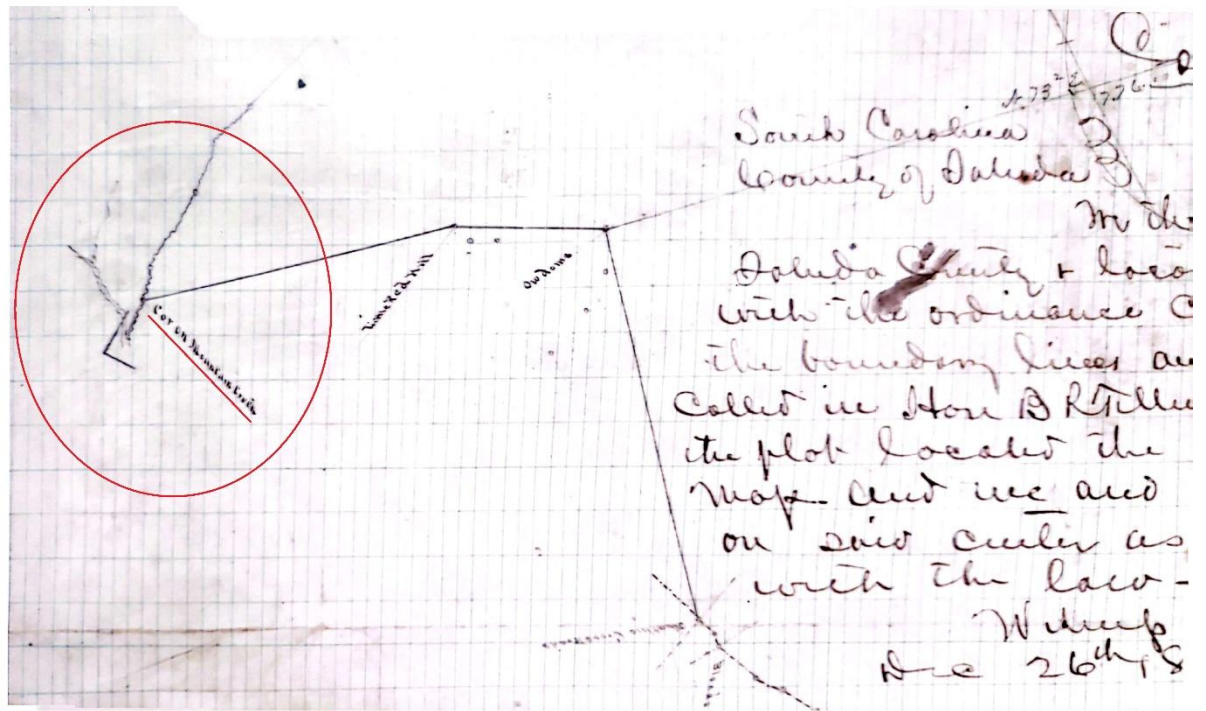 N. 73
South Carolina
County of Saluda
In the
Saluda County & loca
with the ordinance C
the boundary lines an
Called in Hon B R Tillm
the plat located the
Map and we and
on said center as
with the loca-
Witness
Dec 26th, 18
Cor on Mountain Creek
Limered Hill
Owdoms